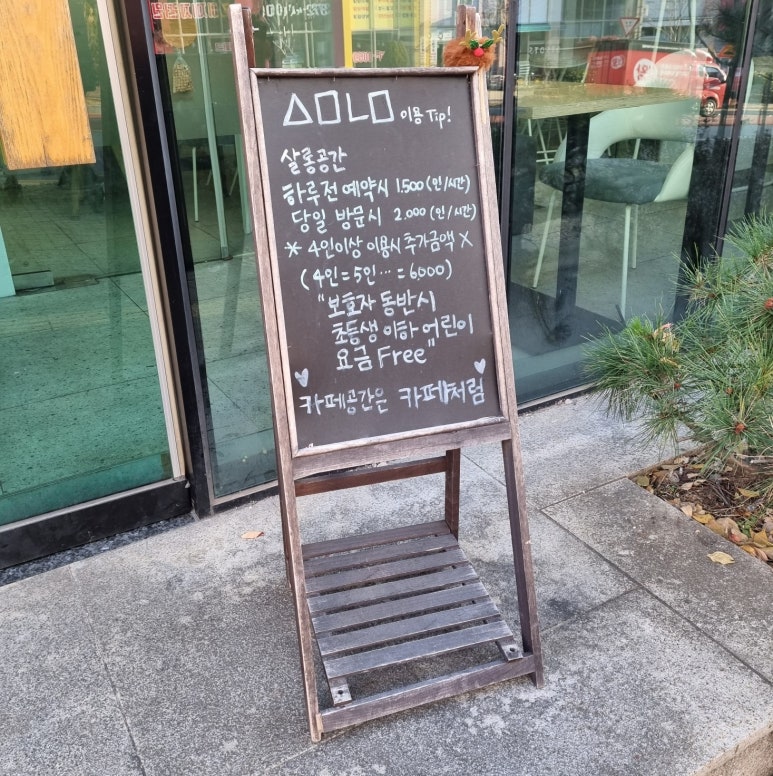 ㅿㅁㄴㅁ 이용 Tip!
살롱공간
하루전 예약시 1.500 (인/시간)
당일 방문시 2.000 (인/시간)
* 4인이상 이용시 추가금액 X
(4인 = 5인 … = 6000)
"보호자 동반시
초등생 이하 어린이
요금 Free"
카페공간은 카페처럼